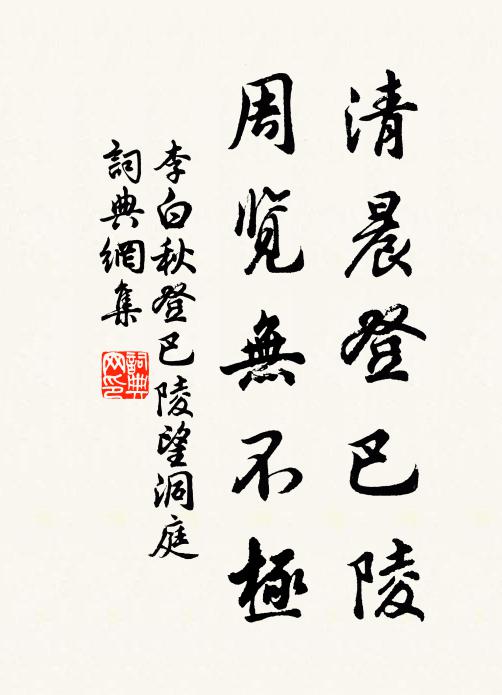 清晨登巴陵
周览無不極
李白秋登巴陵望洞庭
詞典網集
詞典網印